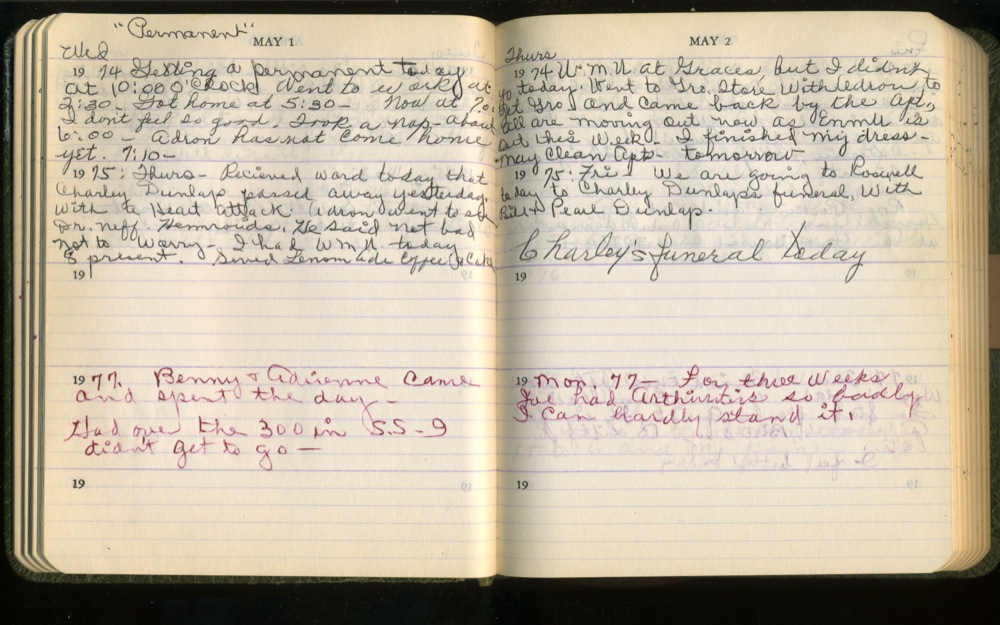 "Permanent"
MAY 1
Wed
1974 Getting a permanent today
at 10:00 O'Clock Went to work at
2:30 - Got home at 5:30 - Now at 7:0
I don't feel so good. Took a nap - about
6:00 - Adron has not come home
yet. 7:10 -
1975: Thurs - Recieved word today that
Charley Dunlap passed away yesterday
With a Heart attack. Adron went to see
Dr. Niff. Hemroids. He said not bad
not to Worry - I had W M U today
8 present. Served Lemonade Coffee & Cake
19
1977. Benny & Adrienne Came
and spent the day -
Had over the 300 in S.S - I
didn't get to go -
19
MAY 2
Thurs
1974 W.M.U at Graces, but I didn't
go today. Went to Gro. Store With Adron, to
get Gro and Came back by the Apt.,
all are moving out now as ENMU is
out this Week. I finished my dress -
may Clean Apt - tomorrow
1975: Fri We are going to Roswell
today to Charley Dunlaps funeral, With
Pearl Dunlap.
Charley's funeral today
19
19 Mon. 77 - For three Weeks
I've had Arthuritis so badly
I can hardly stand it.
19